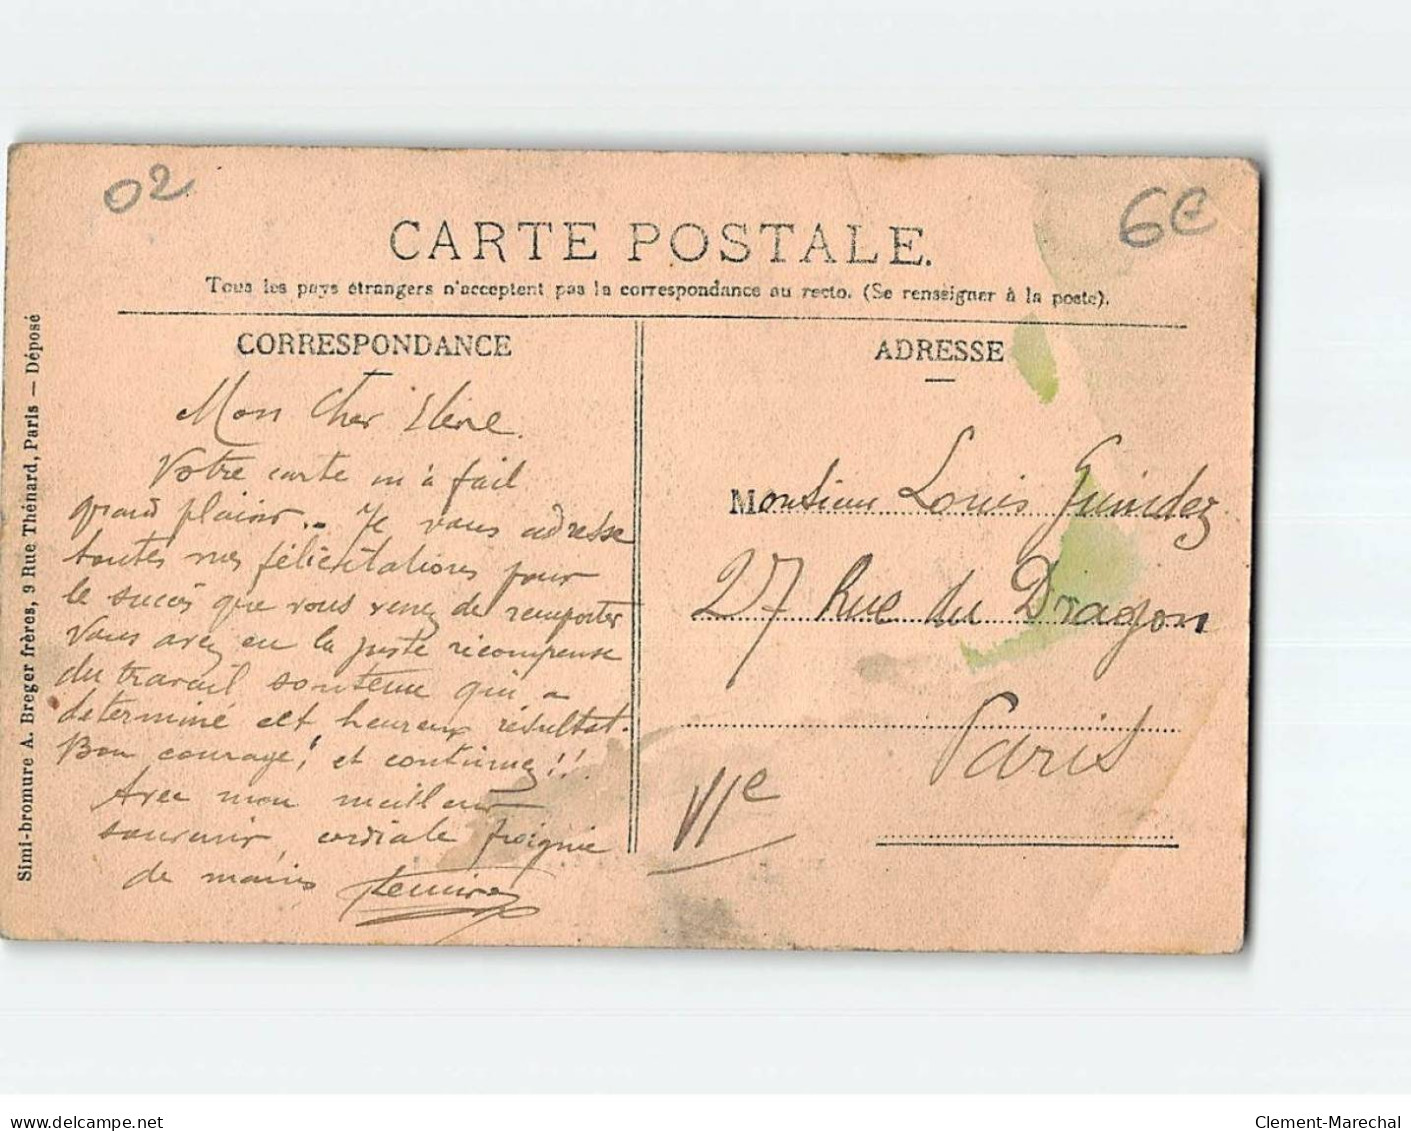 02
6€
CARTE POSTALE.
Tous les pays étrangers n'acceptent pas la correspondance au recto. (Se renseigner à la poste).
CORRESPONDANCE
Mon Cher Elève
Votre carte m'a fait
grand plaisir.. Je vous adresse
toutes mes félicitations pour
le succès que vous venez de remporter
Vous avez eu la juste récompense
du travail soutenu qui a
déterminé cet heureux résultat.
Bon courage! et continuez!!
Avec mon meilleur
souvenir, cordiale poignée
de mains
ADRESSE
Monsieur Louis Guindez
27 Rue du Dragon
Paris
VIe
Simi-bromure A. Breger frères, 9 Rue Thénard, Paris — Déposé
delcampe.net
Clement-Marechal